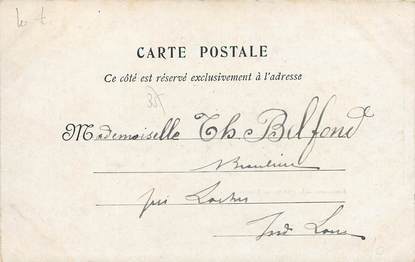 CARTE POSTALE
Ce côté est réservé exclusivement à l'adresse
Mademoiselle Th. Belfond
Beaulieu
près Loches
Indre Loire